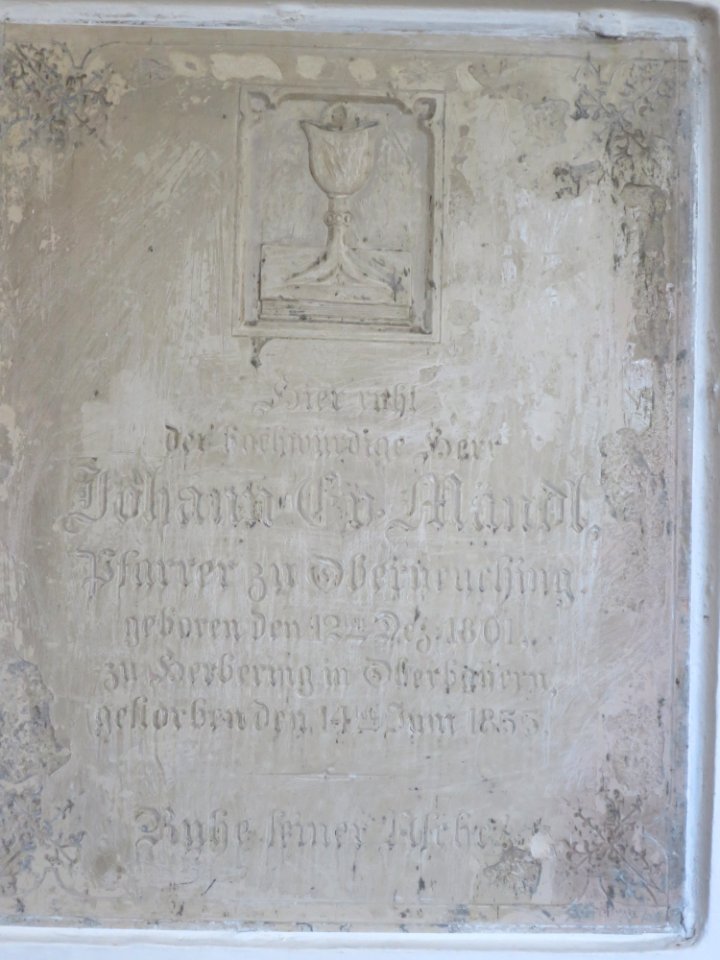 Hier ruht
der hochwürdige Herr
Johann Ev. Mandl,
Pfarrer zu Oberneuching.
geboren den 12ten Dez. 1801.
zu Herbering in Oberbayern,
gestorben den 14ten Juni
Ruhe seiner Asche